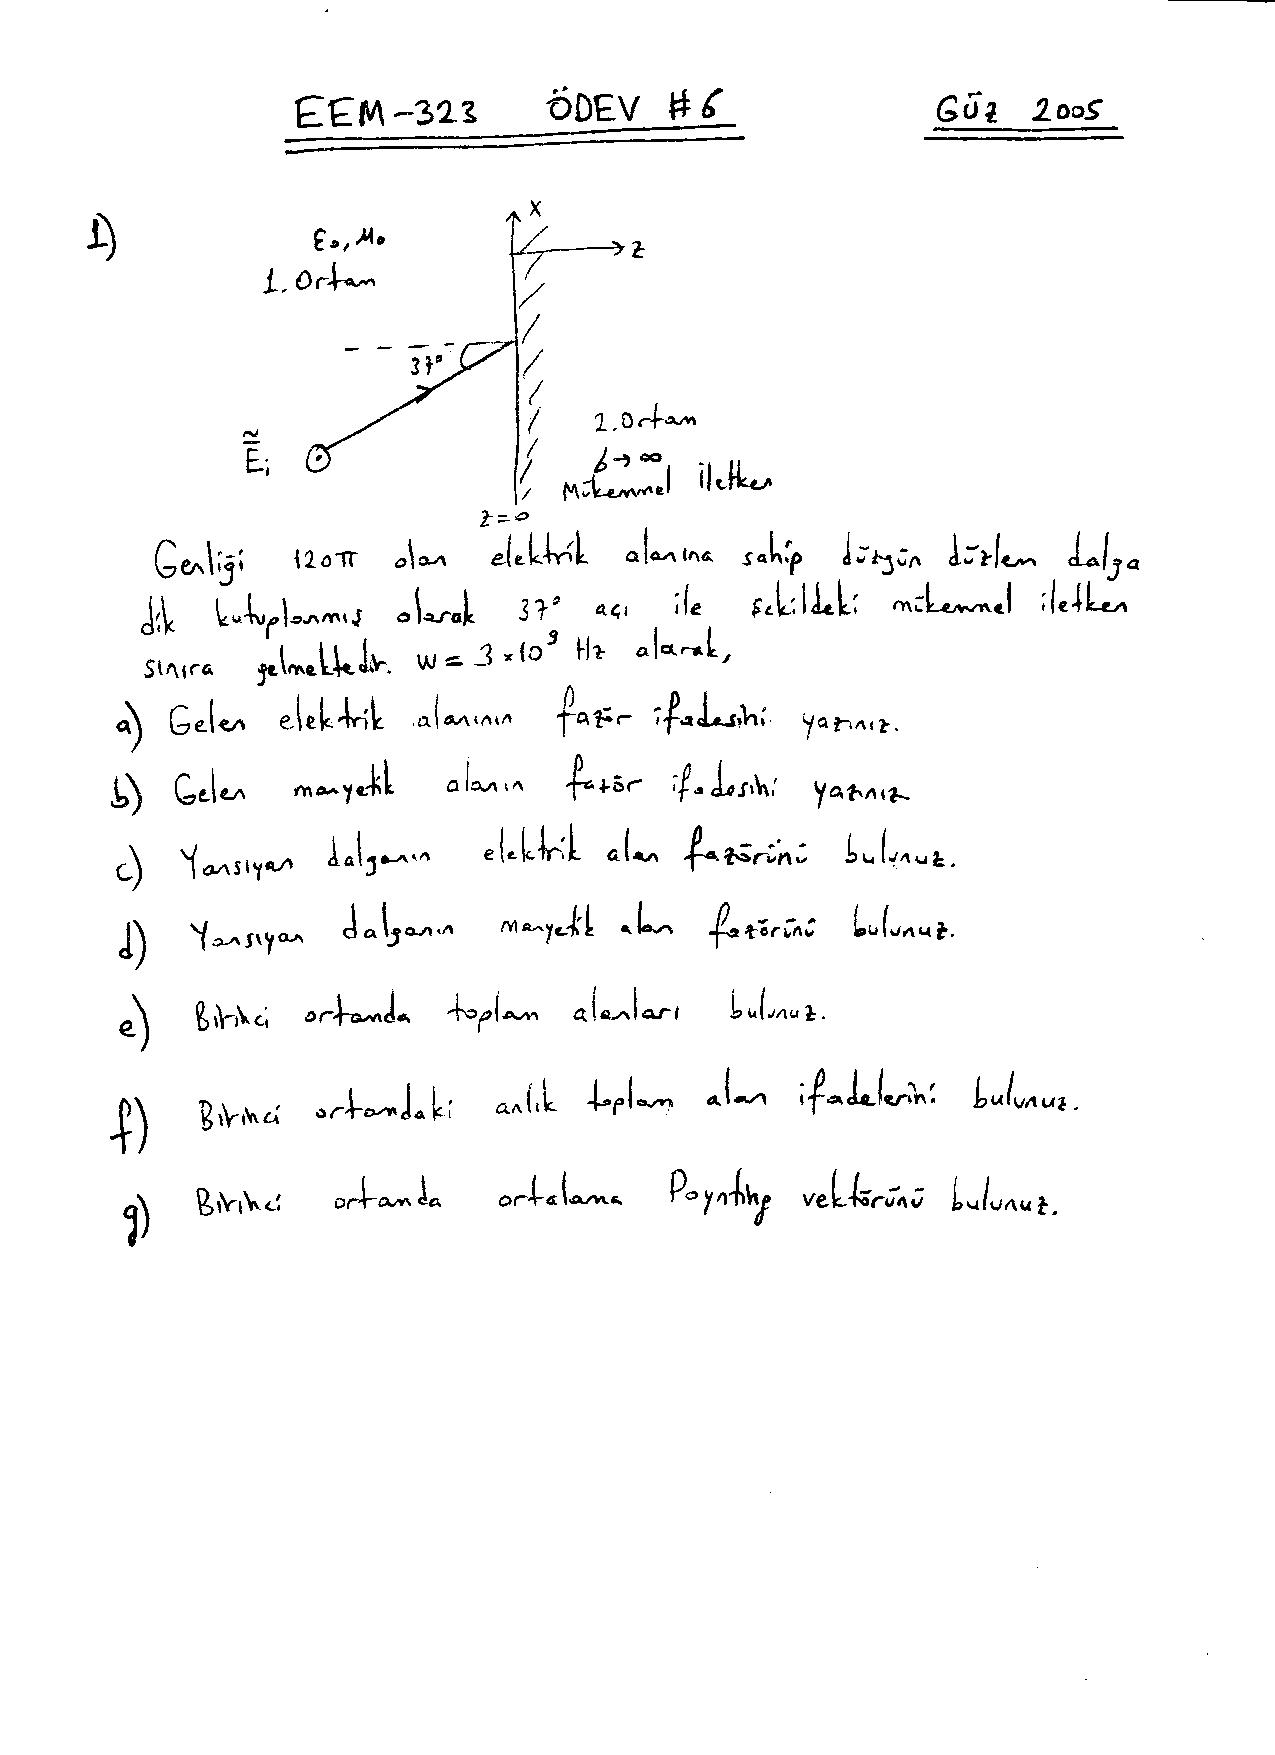 EEM-323 ÖDEV #6 GÜZ 2005
1)
x
ε₀, μ₀
z
1. Ortam
37°
2. Ortam
Ẽi
σ→∞
Mükemmel iletken
z=0
Genliği 120π olan elektrik alanına sahip düzgün düzlem dalga
dik kutuplanmış olarak 37° açı ile şekildeki mükemmel iletken
sınıra gelmektedir. w = 3×10⁹ Hz alarak,
a) Gelen elektrik alanının fazör ifadesini yazınız.
b) Gelen manyetik alanın fazör ifadesini yazınız
c) Yansıyan dalganın elektrik alan fazörünü bulunuz.
d) Yansıyan dalganın manyetik alan fazörünü bulunuz.
e) Birinci ortamda toplam alanları bulunuz.
f) Birinci ortamdaki anlık toplam alan ifadelerini bulunuz.
g) Birinci ortamda ortalama Poynting vektörünü bulunuz.